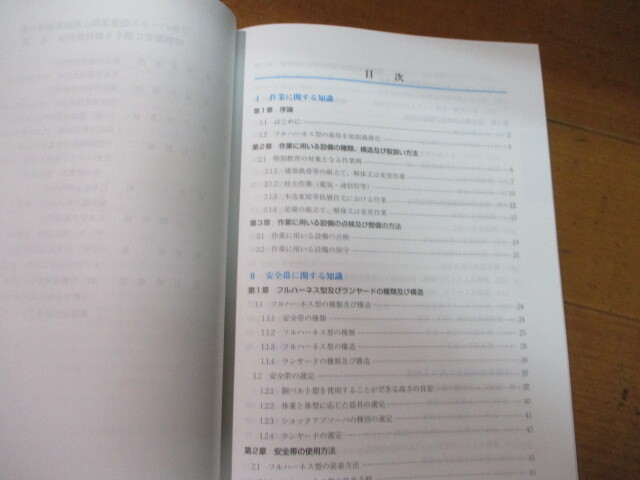 目 次
I 作業に関する知識
第1章 序論
1.1 はじめに 2
1.2 フルハーネス型の着用を原則義務化 4
第2章 作業に用いる設備の種類、構造及び取扱い方法
2.1 特別教育の対象となる作業例 6
2.1.1 建築鉄骨等の組立て、解体又は変更作業 7
2.1.2 柱上作業（電気・通信柱等） 10
2.1.3 木造家屋等低層住宅における作業 12
2.1.4 足場の組立て、解体又は変更作業 15
第3章 作業に用いる設備の点検及び整備の方法
3.1 作業に用いる設備の点検 19
3.2 作業に用いる設備の保守 21
II 安全帯に関する知識
第1章 フルハーネス型及びランヤードの種類及び構造
1.1 フルハーネス型の種類及び構造 24
1.1.1 安全帯の種類 24
1.1.2 フルハーネス型の種類 25
1.1.3 フルハーネス型の構造 28
1.1.4 ランヤードの種類及び構造 34
1.2 安全帯の選定 39
1.2.1 胴ベルト型を使用することができる高さの目安 39
1.2.2 体重と体型に応じた器具の選定 40
1.2.3 ショックアブソーバの種類の選定 41
1.2.4 ランヤードの選定 42
第2章 安全帯の使用方法
2.1 フルハーネス型の装着方法 45